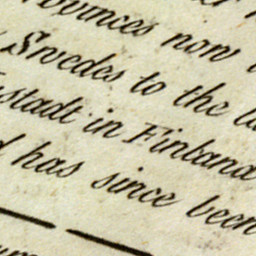 provinces now
Swedes to the
stadt in Finland
has since been